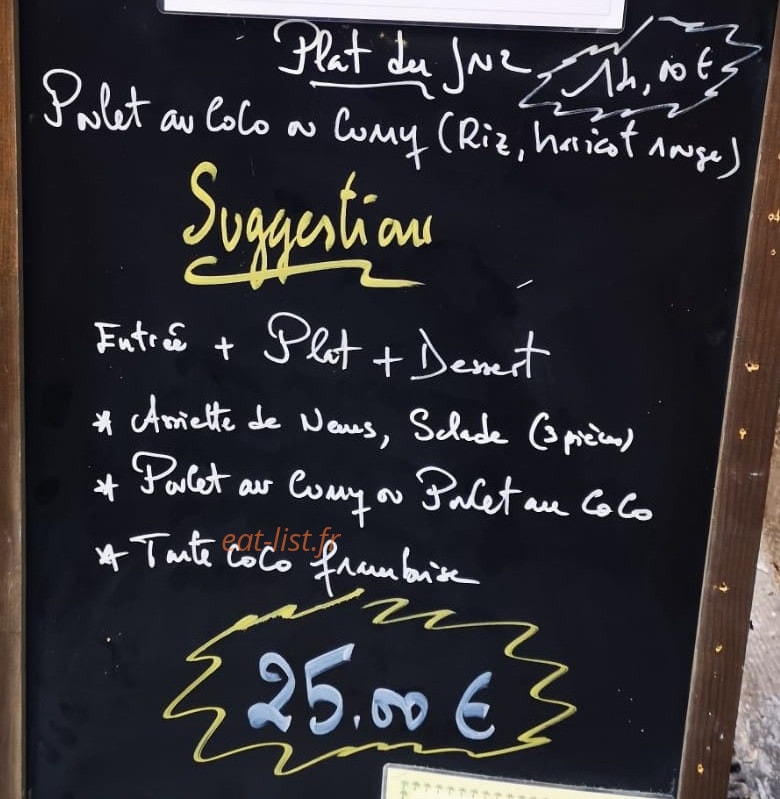 Plat du Jour 14,00 €
Poulet au CoCo ou Curry (Riz, haricot rouge)
Suggestion
Entrée + Plat + Dessert
* Assiette de Nems, Salade (3 pièces)
* Poulet au Curry ou Poulet au CoCo
* Tarte CoCo framboise
eat-list.fr
25.00 €